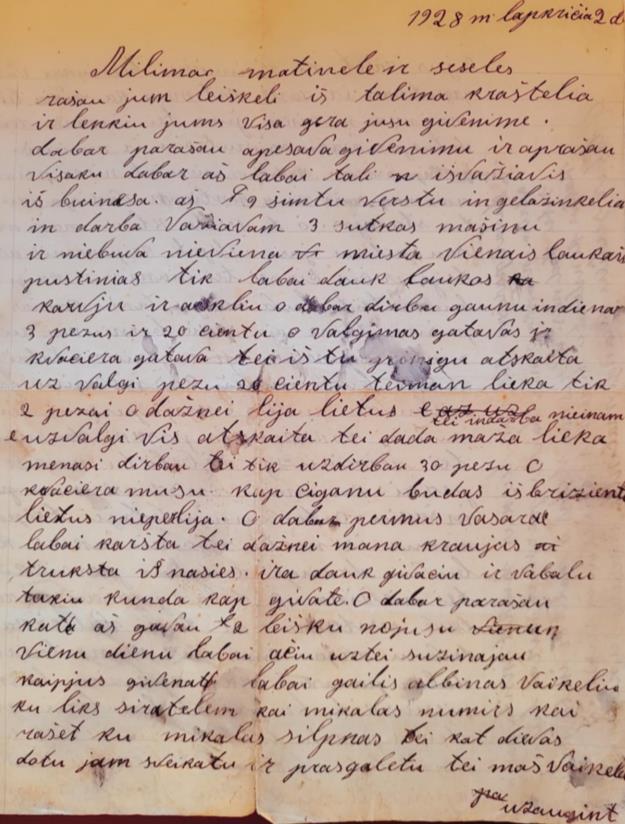 1928 m lapkričia 2 d
Milimac matinele ir seseles
rašau jum leiškeli iš talima kraštelia
ir lenkiu jums visa gera jusu givenime.
dabar parašau apesava givenimu ir aprašau
visaku dabar aš labai tali išvažiavis
iš buinesa. aš 9 šimtu verstu in gelazinkelia
in darba Važiavam 3 sutkas mašinu
ir niebuva nieviena miesta vienais laukais
pustinias tik labai dauk laukas
karvju ir arkliu o dabar dirbu gaunu indiena
3 pezus ir 20 cientu o valgimas gatavas ir
kvaciera gatava tei iš tu pinigu atskaita
uz valgi pezu 20 cientu teiman lieka tik
2 pezai o dažnei lija lietus tei indarba nieinam
e uzvalgi vis atskaita tei dada maža lieka
menasi dirbau tei tik uzdirbau 30 pezu O
kvaciera musu kap ciganu budas iš brizient
lietus nieperlija. O dabar permus vasara
labai karšta tei dažnei mana kraujas
truksta iš nasies. ira dauk givaciu ir vabalu
takiu kunda kap givate. O dabar parašau
kata aš gavau leišku nojusu
vienu dienu labai aciu uztei suzinajau
kaipjus givenat labai gailis albinas vaikeliu
ku liks siratelem kai mikalas numirs kai
rašet ku mikalas silpnas tei kat dievas
dotu jam sveikatu ir prasgaletu tei maš vaikelu
uzaugint